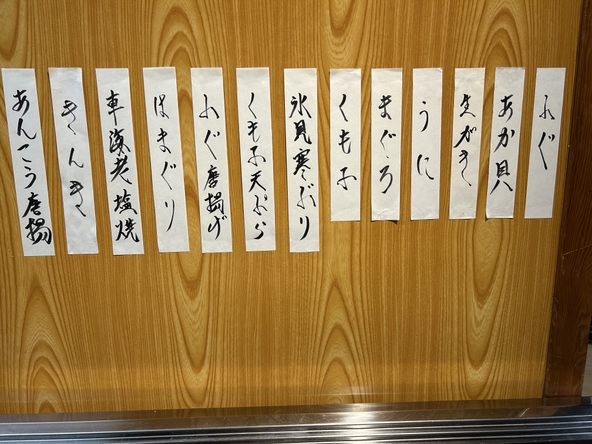 ふぐ
あか貝
生がき
うに
まぐろ
くも子
氷見寒ぶり
くも子天ぷら
ふぐ唐揚げ
はまぐり
車海老塩焼
きんき
あんこう唐揚